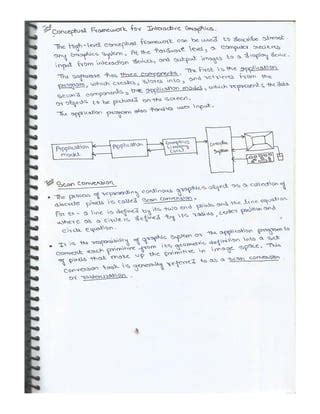 Conceptual Framework for Interactive Graphics.
The High-level conceptual framework can be used to describe almost
any Graphics system. At the hardware level, a computer receives
input from interaction device, and output images to a display device.
The software has three components. The first is the application
program, which creates, stores into, and retrieves from the
second components, the application model, which represents the data
or objects to be pictured on the screen.
The application program also handles user input.
Application model
Application
Graphics
System
Scan Conversion
• The process of representing continuous graphics object as a collection of
discrete pixels is called Scan Conversion.
For ex - a line is defined by its two end points and the line equation
where as a circle is defined by its radius, center position and
circle equation.
• It is the responsibility of graphic system or the application program to
convert each primitive from its geometric definition into a set
of pixels that make up the primitive in image space. This
conversion task is generally referred to as a scan conversion
or rasterization.